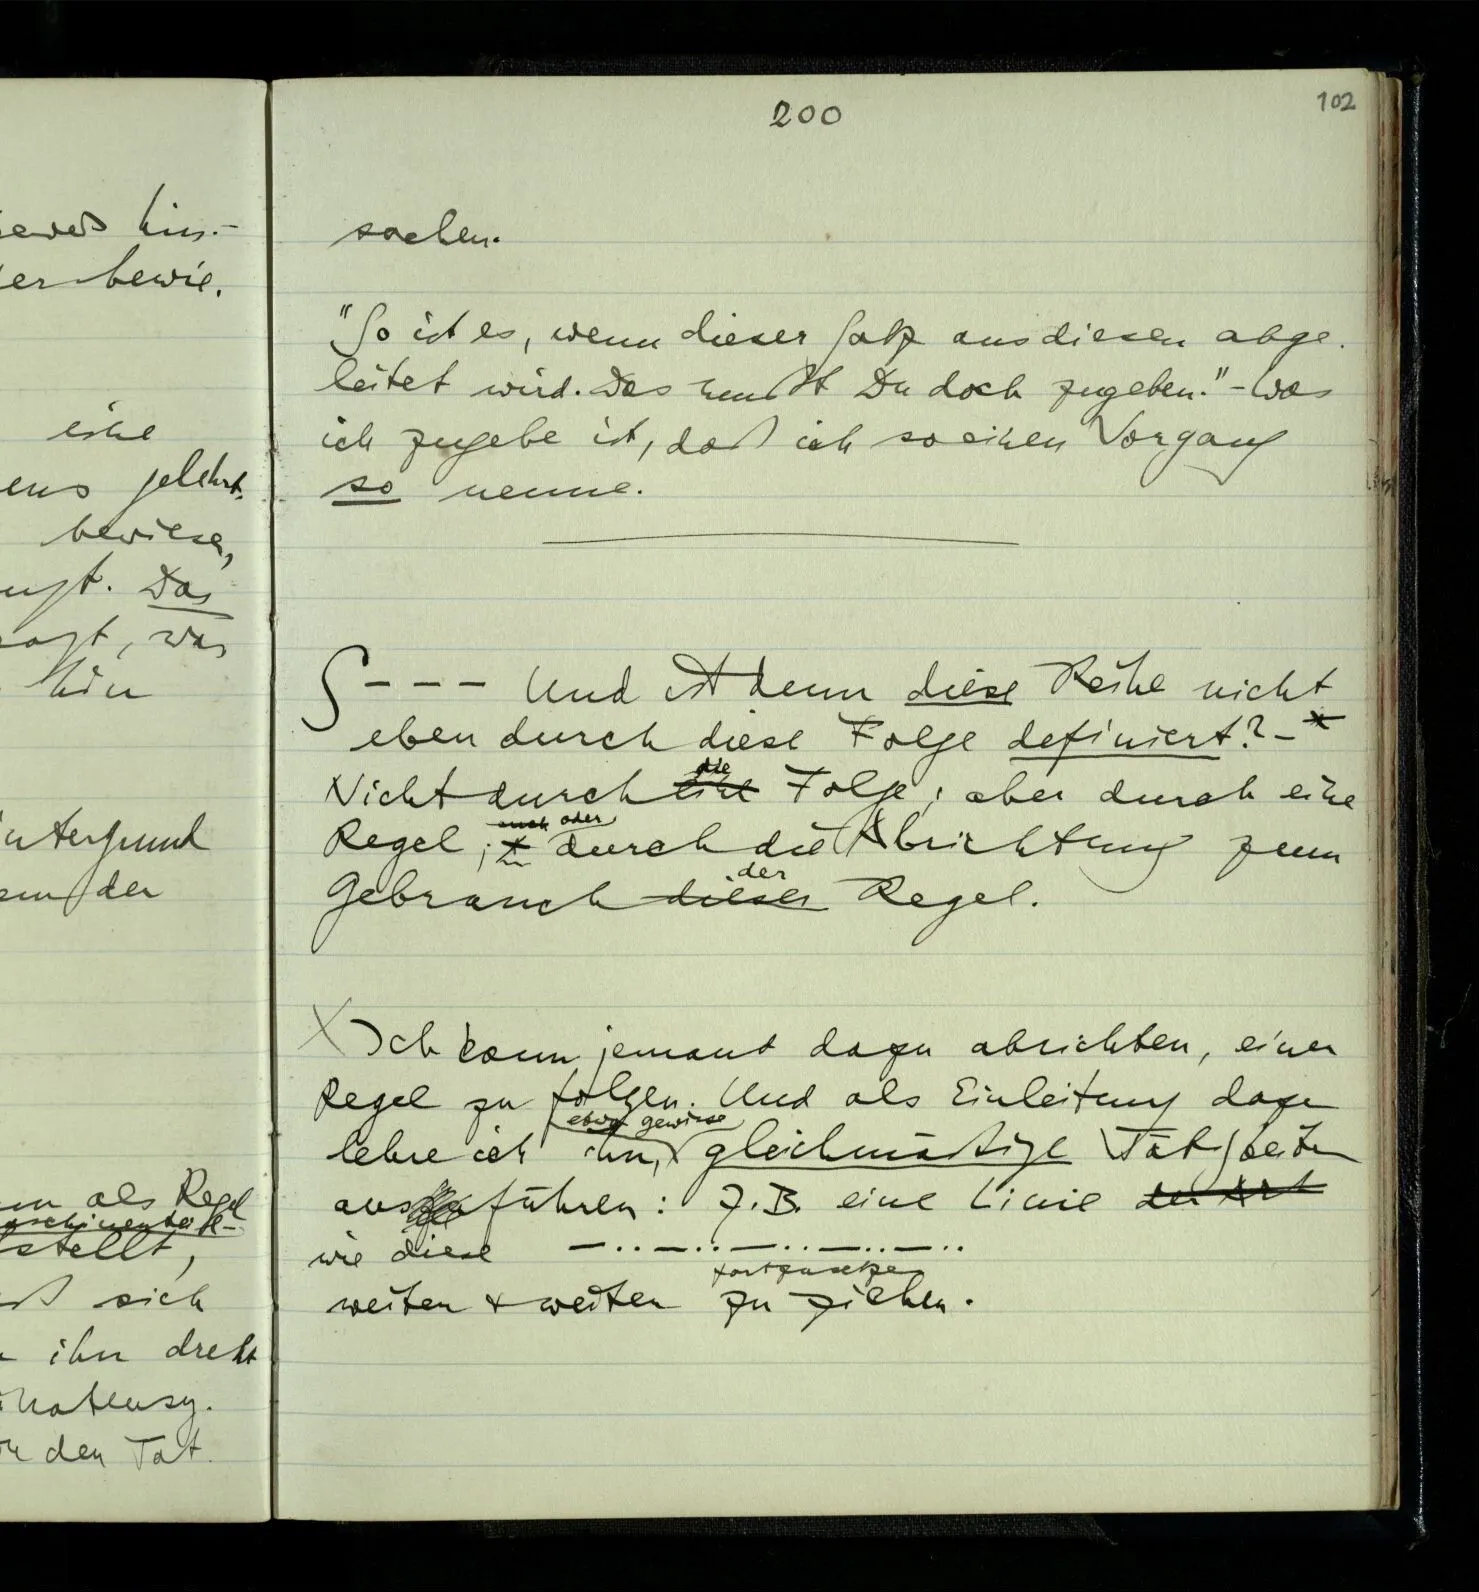 200
102
hin-
bewie.
eine
gelehrt,
bewiesen,
Das
sagt, was
der
als Regel
stellt,
sich
ihn dreht
den Tat
sachen.
"So ist es, wenn dieser Satz aus diesen abge-
leitet wird. Das mußt Du doch zugeben." – Was
ich zugebe ist, daß ich so einen Vorgang
so nenne.
∫ – – – Und ist denn diese Reihe nicht
eben durch diese Folge definiert? –
Nicht durch eine die Folge; aber durch eine
Regel; auch oder durch die Abrichtung zum
Gebrauch dieser der Regel.
X Ich kann jemant dazu abrichten, einer
Regel zu folgen. Und als Einleitung dazu
lehre ich ihn, etwa gewisse gleichmäßige Tätigkeiten
ausführen: Z.B. eine Linie der Art
wie diese –..–..–..–..–..
weiter + weiter fortzusetzen zu ziehen.